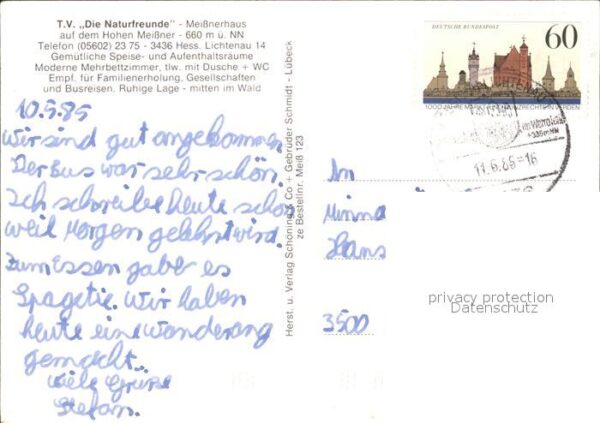 T.V. „Die Naturfreunde" - Meißnerhaus
auf dem Hohen Meißner - 660 m ü. NN
Telefon (05602) 23 75 - 3436 Hess. Lichtenau 14
Gemütliche Speise- und Aufenthaltsräume
Moderne Mehrbettzimmer, tlw. mit Dusche + WC
Empf. für Familienerholung, Gesellschaften
und Busreisen. Ruhige Lage - mitten im Wald
10.5.85
Wir sind gut angekommen.
Der Bus war sehr schön.
Ich schreibe heute schon
weil Morgen gelehrt wird.
zum Essen gaber es
Spagetie. Wir haben
heute eine wanderang
gemacht.
Viele Grüße
Stefan.
Herst. u. Verlag Schöning & Co + Gebrüder Schmidt - Lübeck
ze Bestellnr. Meiß 123
DEUTSCHE BUNDESPOST
60
1000 JAHRE MARKT- UND MÜNZRECHT VERDEN
11.6.85-16
An
Minna
Hans
3500
privacy protection
Datenschutz